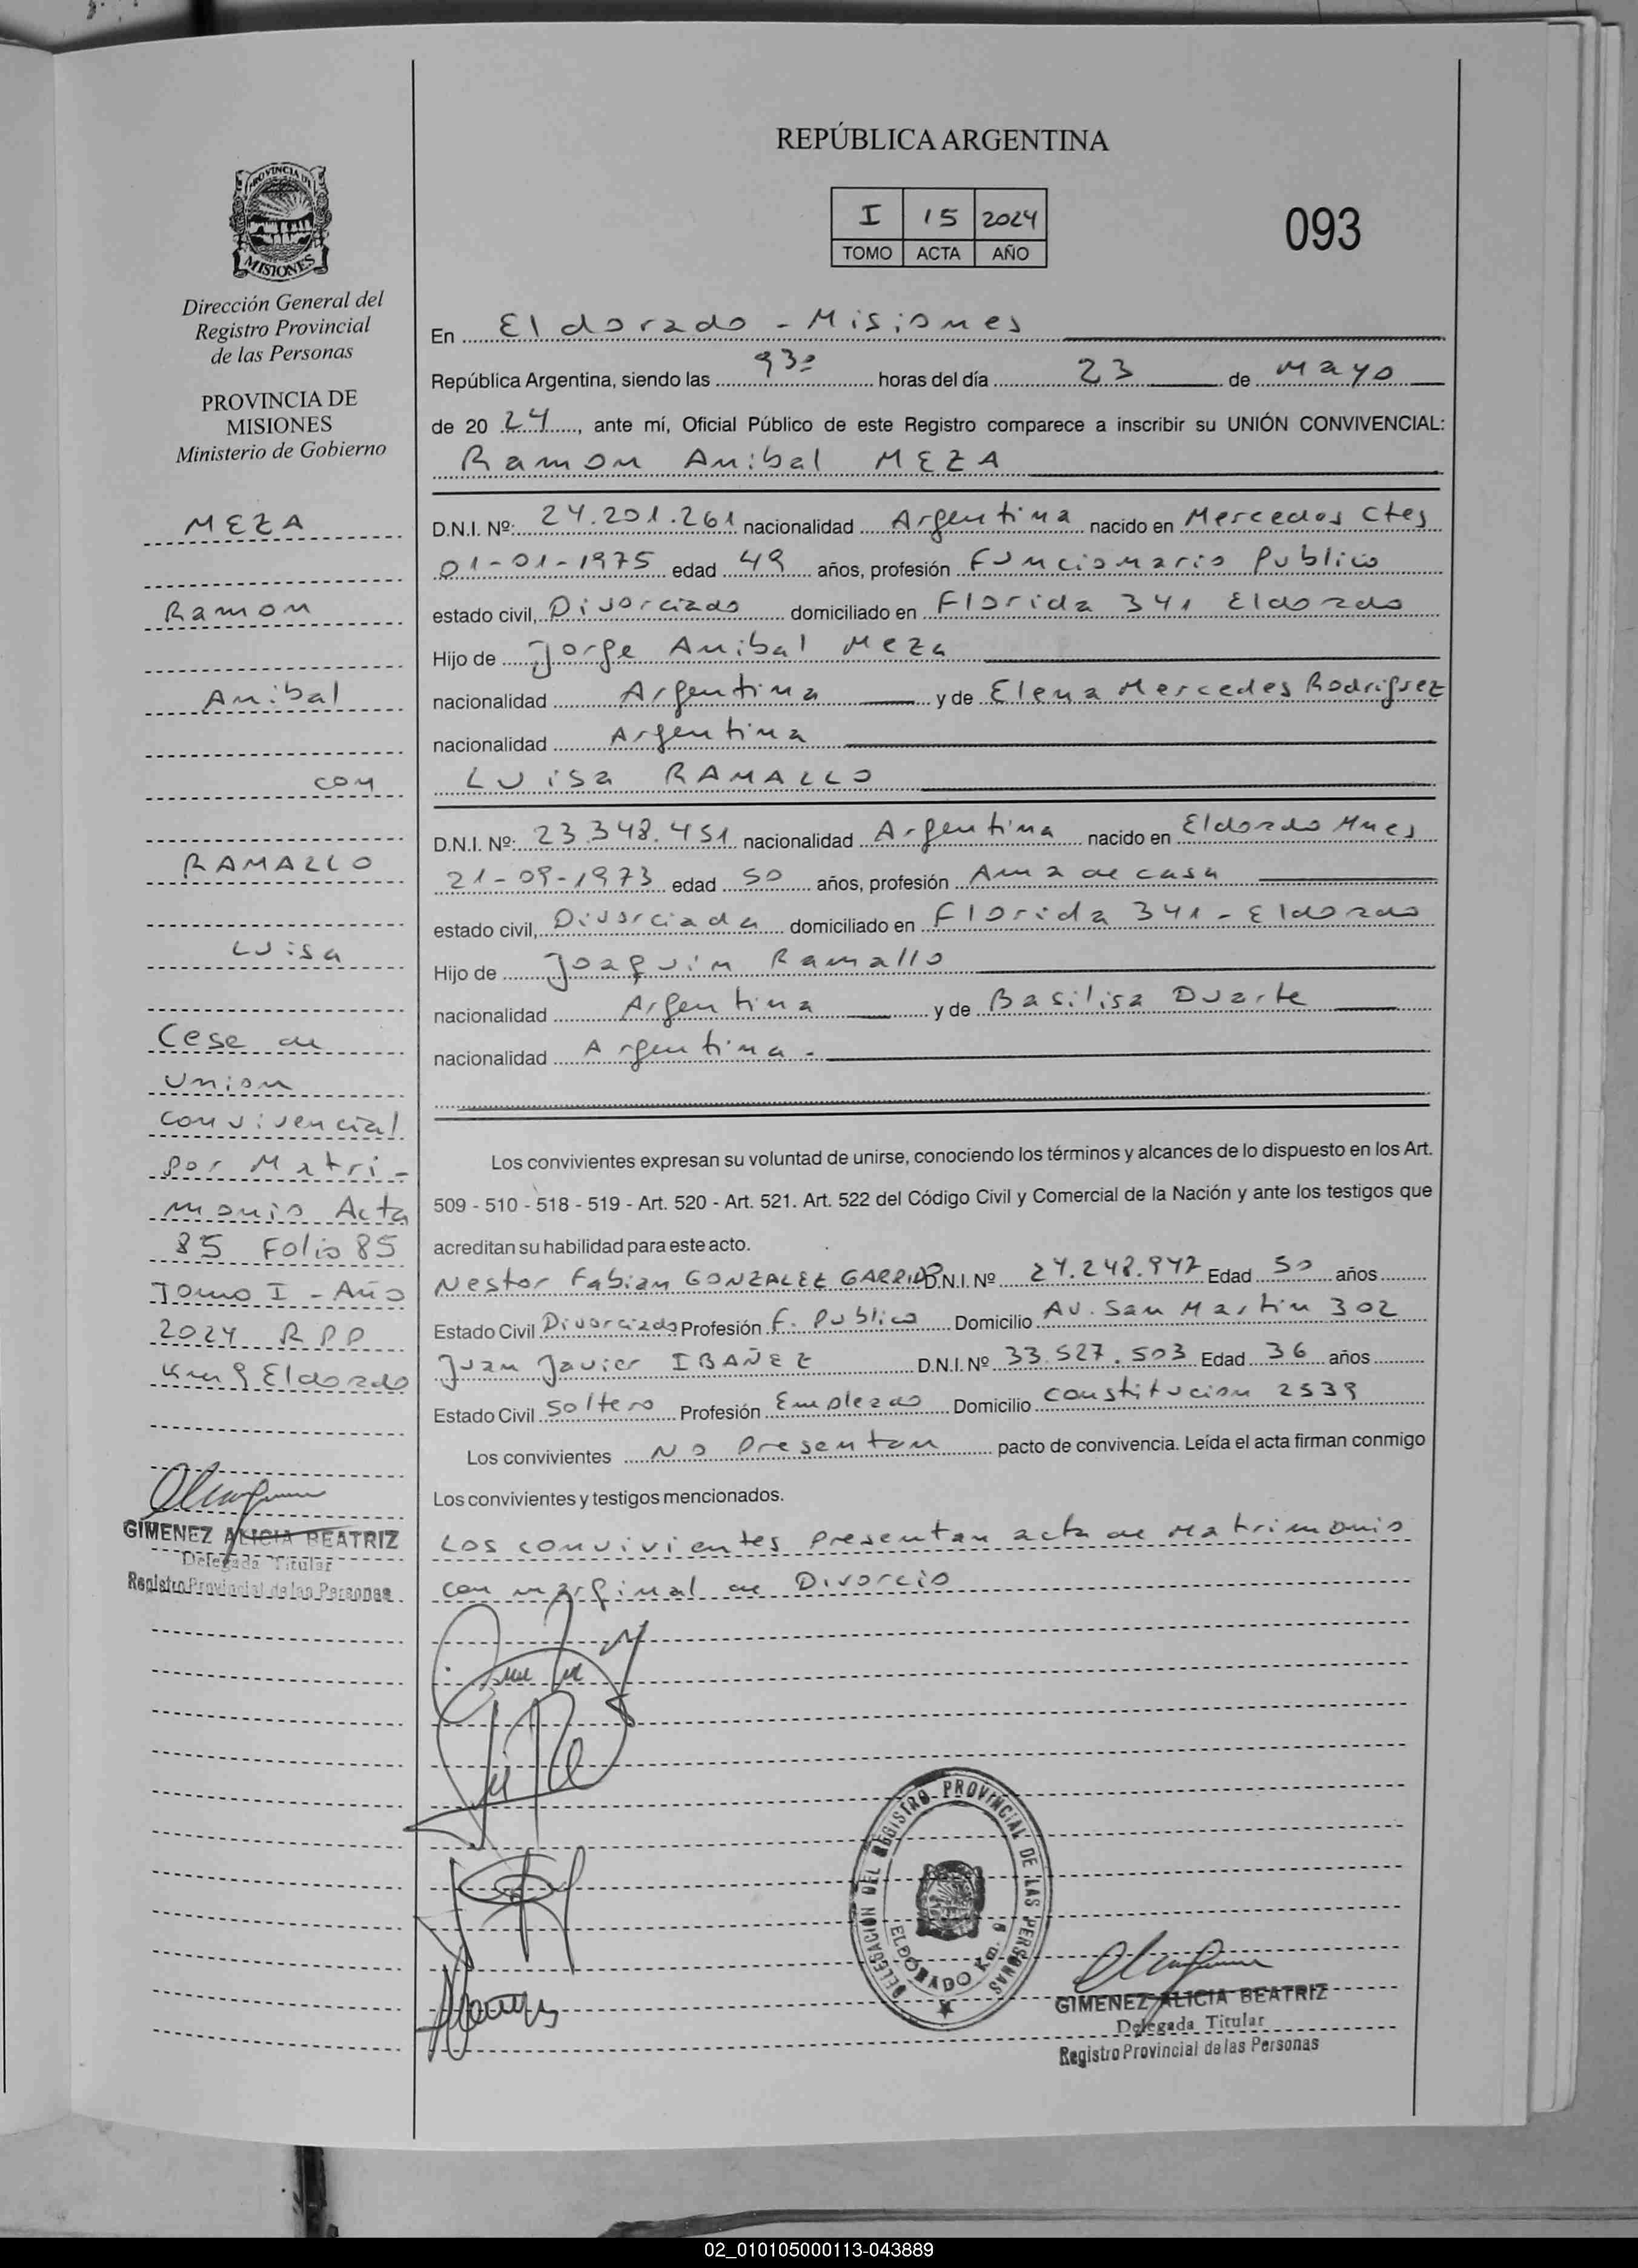 PROVINCIA DE
MISIONES
Dirección General del
Registro Provincial
de las Personas
PROVINCIA DE
MISIONES
Ministerio de Gobierno
MEZA
Ramon
Anibal
con
RAMALLO
Luisa
Cese de
Union
convivencial
por Matri-
monio Acta
85 Folio 85
Tomo I - Año
2024 RPP
Km 9 Eldorado
GIMENEZ ALICIA BEATRIZ
Delegada Titular
Registro Provincial de las Personas
REPÚBLICA ARGENTINA
I 15 2024
TOMO ACTA AÑO
093
En Eldorado - Misiones
República Argentina, siendo las 9 30 horas del día 23 de Mayo
de 20 24, ante mí, Oficial Público de este Registro comparece a inscribir su UNIÓN CONVIVENCIAL:
Ramon Anibal MEZA
D.N.I. Nº: 24.201.261 nacionalidad Argentina nacido en Mercedes Ctes
01-01-1975 edad 49 años, profesión Funcionario Publico
estado civil, Divorciado domiciliado en Florida 341 Eldorado
Hijo de Jorge Anibal Meza
nacionalidad Argentina y de Elena Mercedes Rodriguez
nacionalidad Argentina
Luisa RAMALLO
D.N.I. Nº: 23.348.451 nacionalidad Argentina nacido en Eldorado Mnes
21-09-1973 edad 50 años, profesión Ama de casa
estado civil, Divorciada domiciliado en Florida 341 - Eldorado
Hijo de Joaquin Ramallo
nacionalidad Argentina y de Basilisa Duarte
nacionalidad Argentina.
Los convivientes expresan su voluntad de unirse, conociendo los términos y alcances de lo dispuesto en los Art.
509 - 510 - 518 - 519 - Art. 520 - Art. 521. Art. 522 del Código Civil y Comercial de la Nación y ante los testigos que
acreditan su habilidad para este acto.
Nestor Fabian GONZALEZ GARRIDO D.N.I. Nº 24.248.947 Edad 50 años
Estado Civil Divorciado Profesión F. Publico Domicilio Av. San Martin 302
Juan Javier IBAÑEZ D.N.I. Nº 33.527.503 Edad 36 años
Estado Civil Soltero Profesión Empleado Domicilio Constitucion 2539
Los convivientes No Presentan pacto de convivencia. Leída el acta firman conmigo
Los convivientes y testigos mencionados.
Los convivientes presentan acta de Matrimonio
con marginal de Divorcio
DELEGACIÓN DEL REGISTRO PROVINCIAL DE LAS PERSONAS
ELDORADO Km. 9
GIMENEZ ALICIA BEATRIZ
Delegada Titular
Registro Provincial de las Personas
02_010105000113-043889